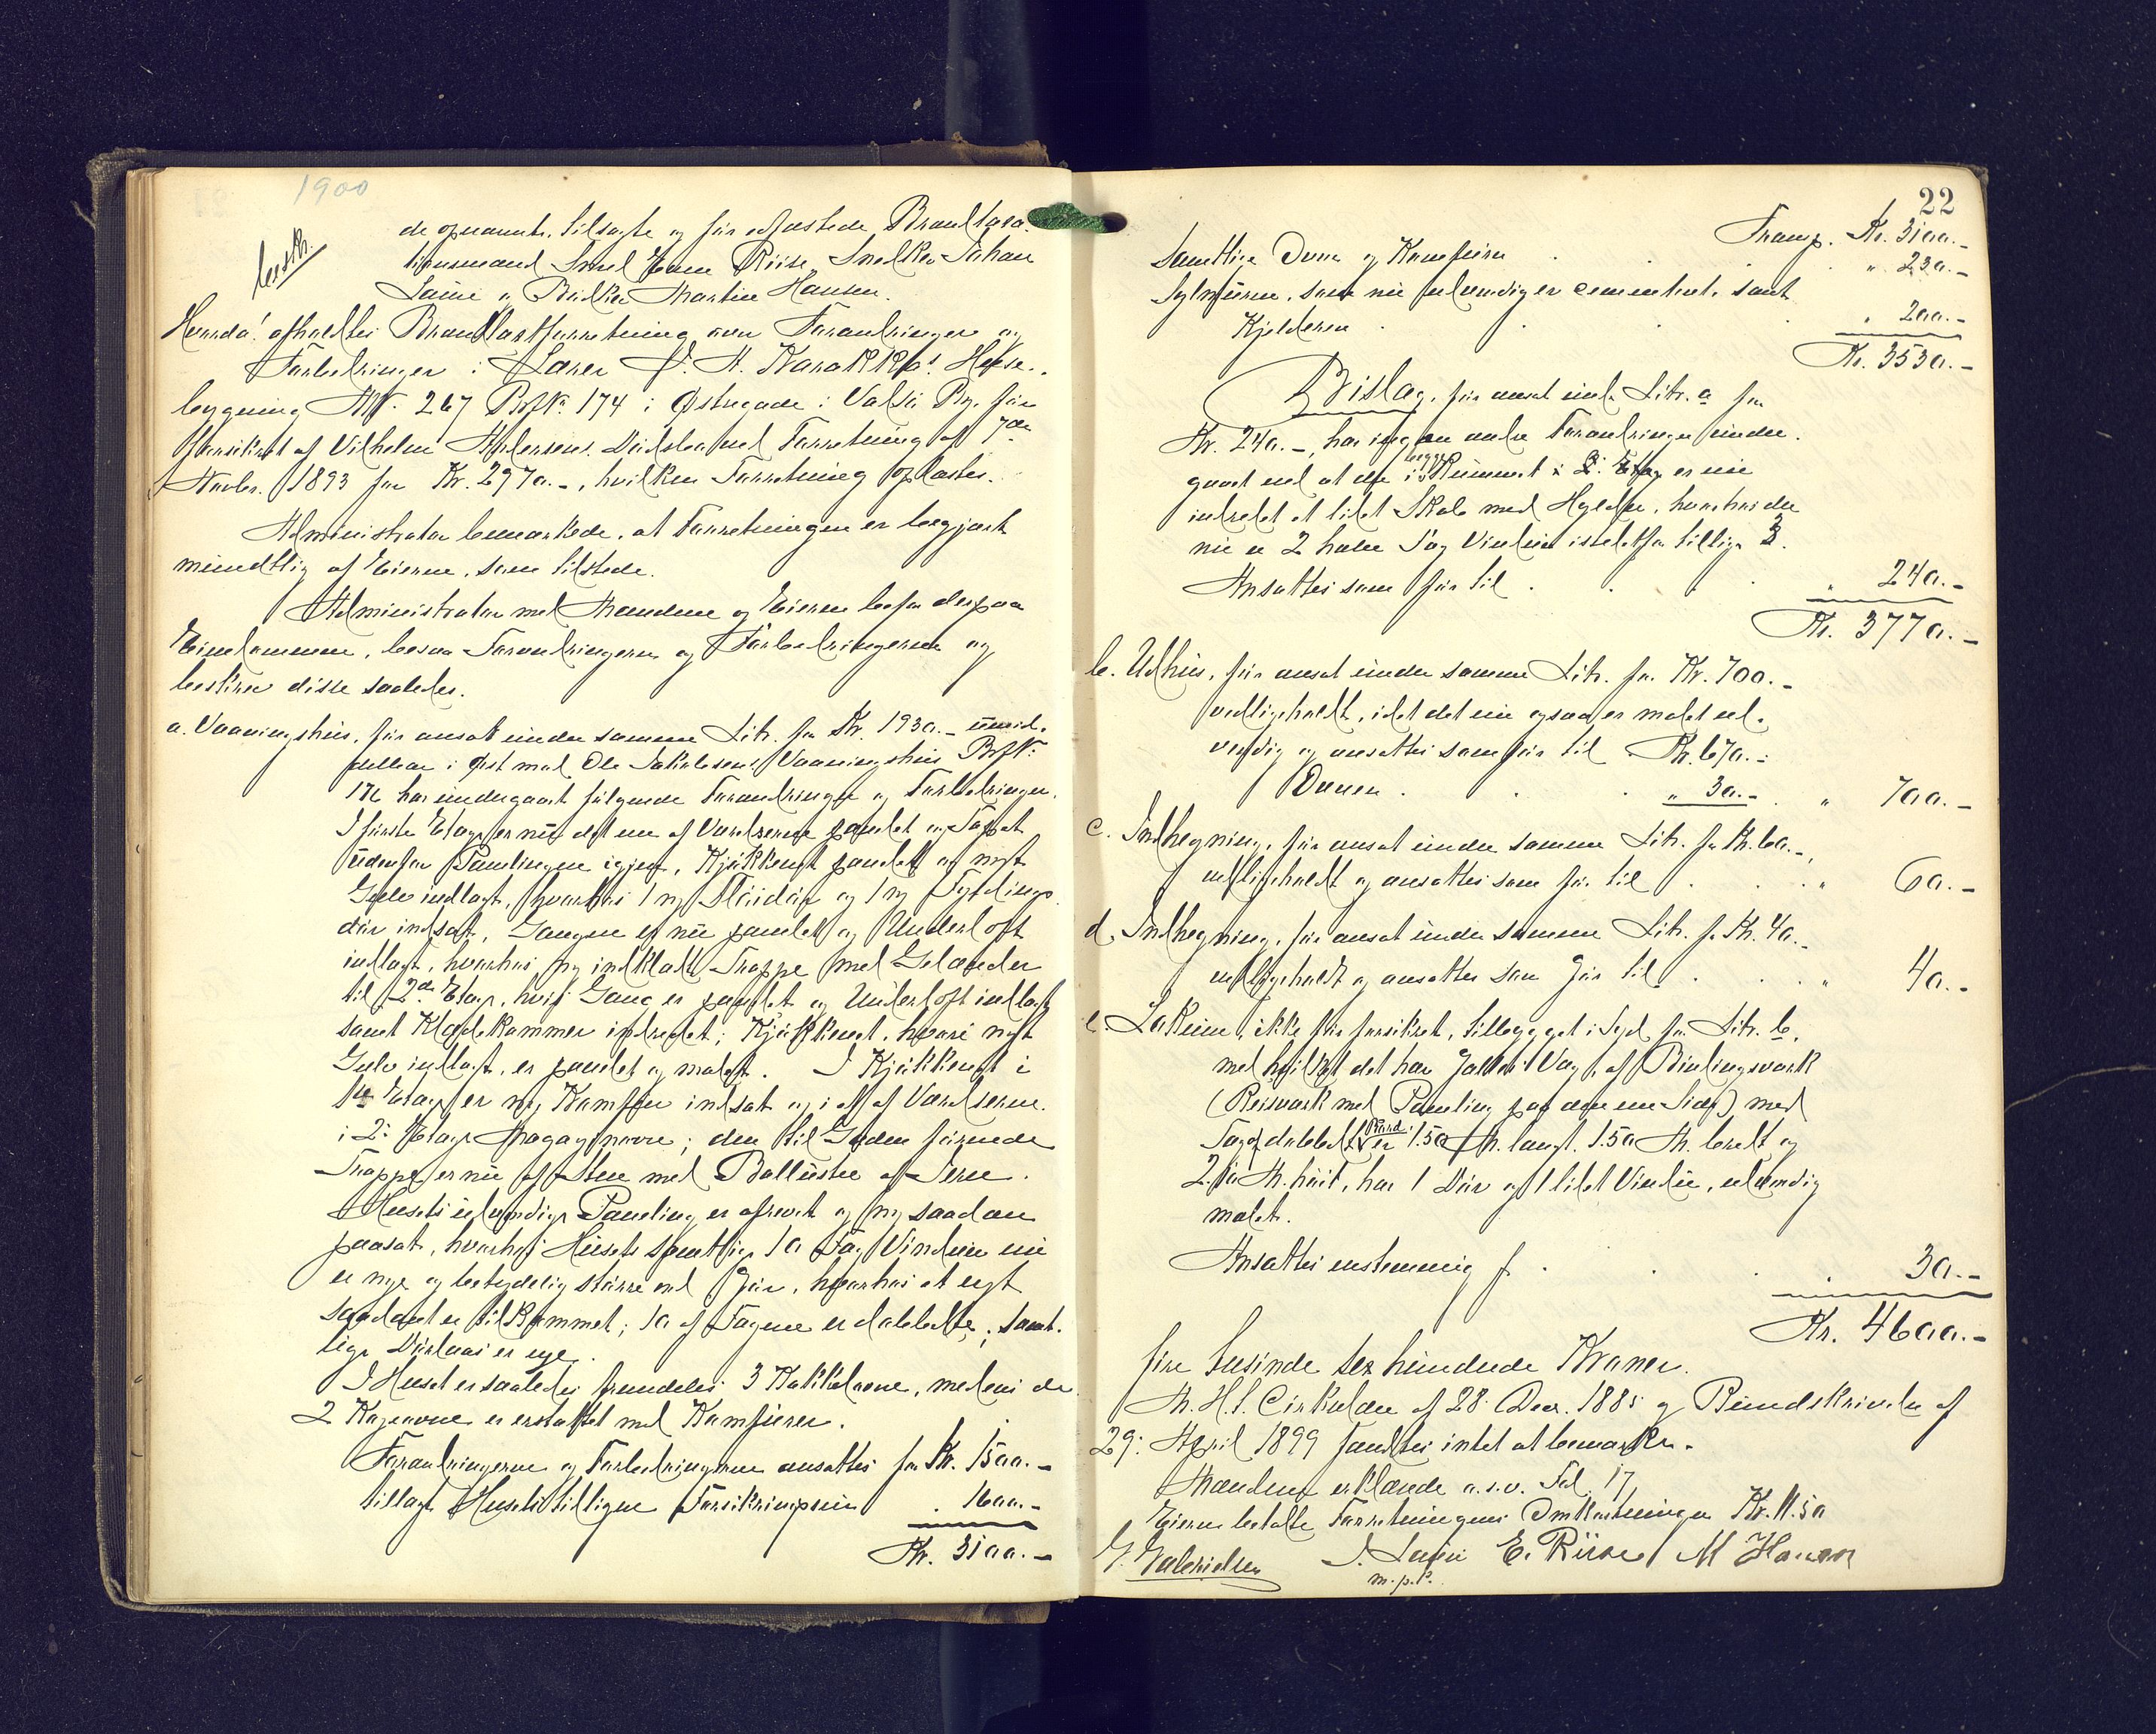 1900
de opnævnte, tilsagte og før edfæstede Brandtaxa-
tionsmænd Smed Even Riise, Snekker Johan
Laurie og Bødker Martin Hansen.
Besk.
Hvorda! afholdtes Brandtaxtforretning over Forandringer og
Forbedringer i Lærer
bygning No. 267 Bofk. 174 i Østregade i Vadsø By, før
forsikret af Vilhelm Andersens Dødsbo ved Forretning af 7de
Novbr. 1893 for Kr. 2970.-, hvilken Forretning oplæstes.
Administrator bemærkede, at Forretningen er begjært
mundtlig af Eieren, som tilstede.
Administrator med Mændene og Eieren begav derpaa
Eiendommen, besaa Forandringerne og Forbedringerne og
beskrev disse saaledes.
a. Vaaningshus, før ansat under samme Litr. for Kr. 1930.- umid-
delbar i Øst mod Ole Jakobsens Vaaningshus Bofk.
176 har undergaaet følgende Forandringer og Forbedringer.
I første Etage er nu det ene af Værelserne panelet og Tapet
udenfor Panelingen igjen, Kjøkkenet panelet og nyt
Gulv indlagt, hvorhos 1 ny Fløidør og 1 ny Fyldings-
dør indsat, Gangen er nu panelet og Underloft
indlagt, hvorhos ny indklædt Trappe med Gelænder
til 2den Etage, hvis Gang er panelet og Underloft indlagt
samt Klædekammer indredet; Kjøkkenet, hvori nyt
Gulv indlagt, er panelet og malet. I Kjøkkenet i
1ste Etage er ny Komfur indsat og i et af Værelserne
i 2. Etage Magasinovn; den til Gaden førende
Trappe er nu af Sten med Ballustre af Jern.
Husets udvendige Paneling er afrevet og ny saadan
paasat, hvorhos Husets samtlige 10 Fag Vinduer nu
er nye og betydelig større end før, hvorhos et nyt
saadant er tilkommet; 10 af Fagene er dobbelte; samt-
lige Dørlaase er nye.
I Huset er saaledes fremdeles 3 Kakkelovne, medens de
2 Kogeovne er erstattet med Komfurer.
Forandringerne og Forbedringerne ansattes for Kr. 1500.-
tillagt Husets tidligere Forsikringssum " 1600.-
Kr. 3100.-
22
Transp. Kr. 3100.-
Samtlige Ovne og Komfurer . . . " 230.-
Sylmuren, som nu udvendig er cementeret, samt
Kjelderen . . . " 200.-
Kr. 3530.-
Bislag, før ansat und. Litr. a for
Kr. 240.-, har ingen andre Forandringer under-
gaaet end at der i begge Rummet i 2. Etag er nu
indredet et lidet Skab med Hylder, hvorhos der
nu er 2 hele Fag Vinduer istedetfor tidligere 3.
Ansattes som før til . . . " 240.-
Kr. 3770.-
b. Udhus, før ansat under samme Litr. for Kr. 700.-
vedligeholdt, idet det nu ogsaa er malet ud-
vendig og ansattes som før til Kr. 670.-
Ovnen . . . " 30.- . " 700.-
c. Indhegning, før ansat under samme Litr. for Kr. 60.-,
vedligeholdt og ansattes som før til . . " 60.-
d. Indhegning, før ansat under samme Litr. for Kr. 40.-
vedligeholdt og ansattes som før til . . " 40.-
e. Lokum, ikke før forsikret, tilbygget i Syd for Litr. b,
med hvilket det har fælles Væg, af Bindingsværk
(Reisværk med Paneling paa den ene Side), med
Tag af dobbelt Bord er 1.50 M. langt, 1.50 M. bredt og
M. høit, har 1 Dør og 1 lidet Vindu, udvendig
malet.
Ansattes enstemmig f. . . . " 30.-
Kr. 4600.-
fire tusinde sex hundrede Kroner.
M. H. t. Cirkulære af 28. Decr. 1885 og Rundskrivelse af
29. April 1899 fandtes intet at bemærke.
Mændene erklærede o.s.v. Fol. 17
Eieren betalte Forretningens Omkostninger Kr. 11.50
G. Gabrielsen J. Laurie E. Riise M Hansen
m.p.P.